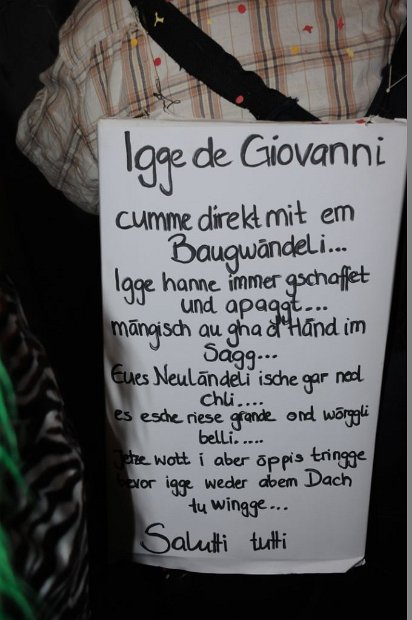 Igge de Giovanni
cumme direkt mit em
Baugwändeli...
Igge hanne immer gschaffet
und apaggt...
mängisch au gha d'Händ im
Sagg...
Eues Neuländeli ische gar nod
chli....
es esche riese grande ond wörggli
belli.....
Jetze wott i aber öppis tringge
bevor igge weder abem Dach
tu wingge...
Salutti tutti